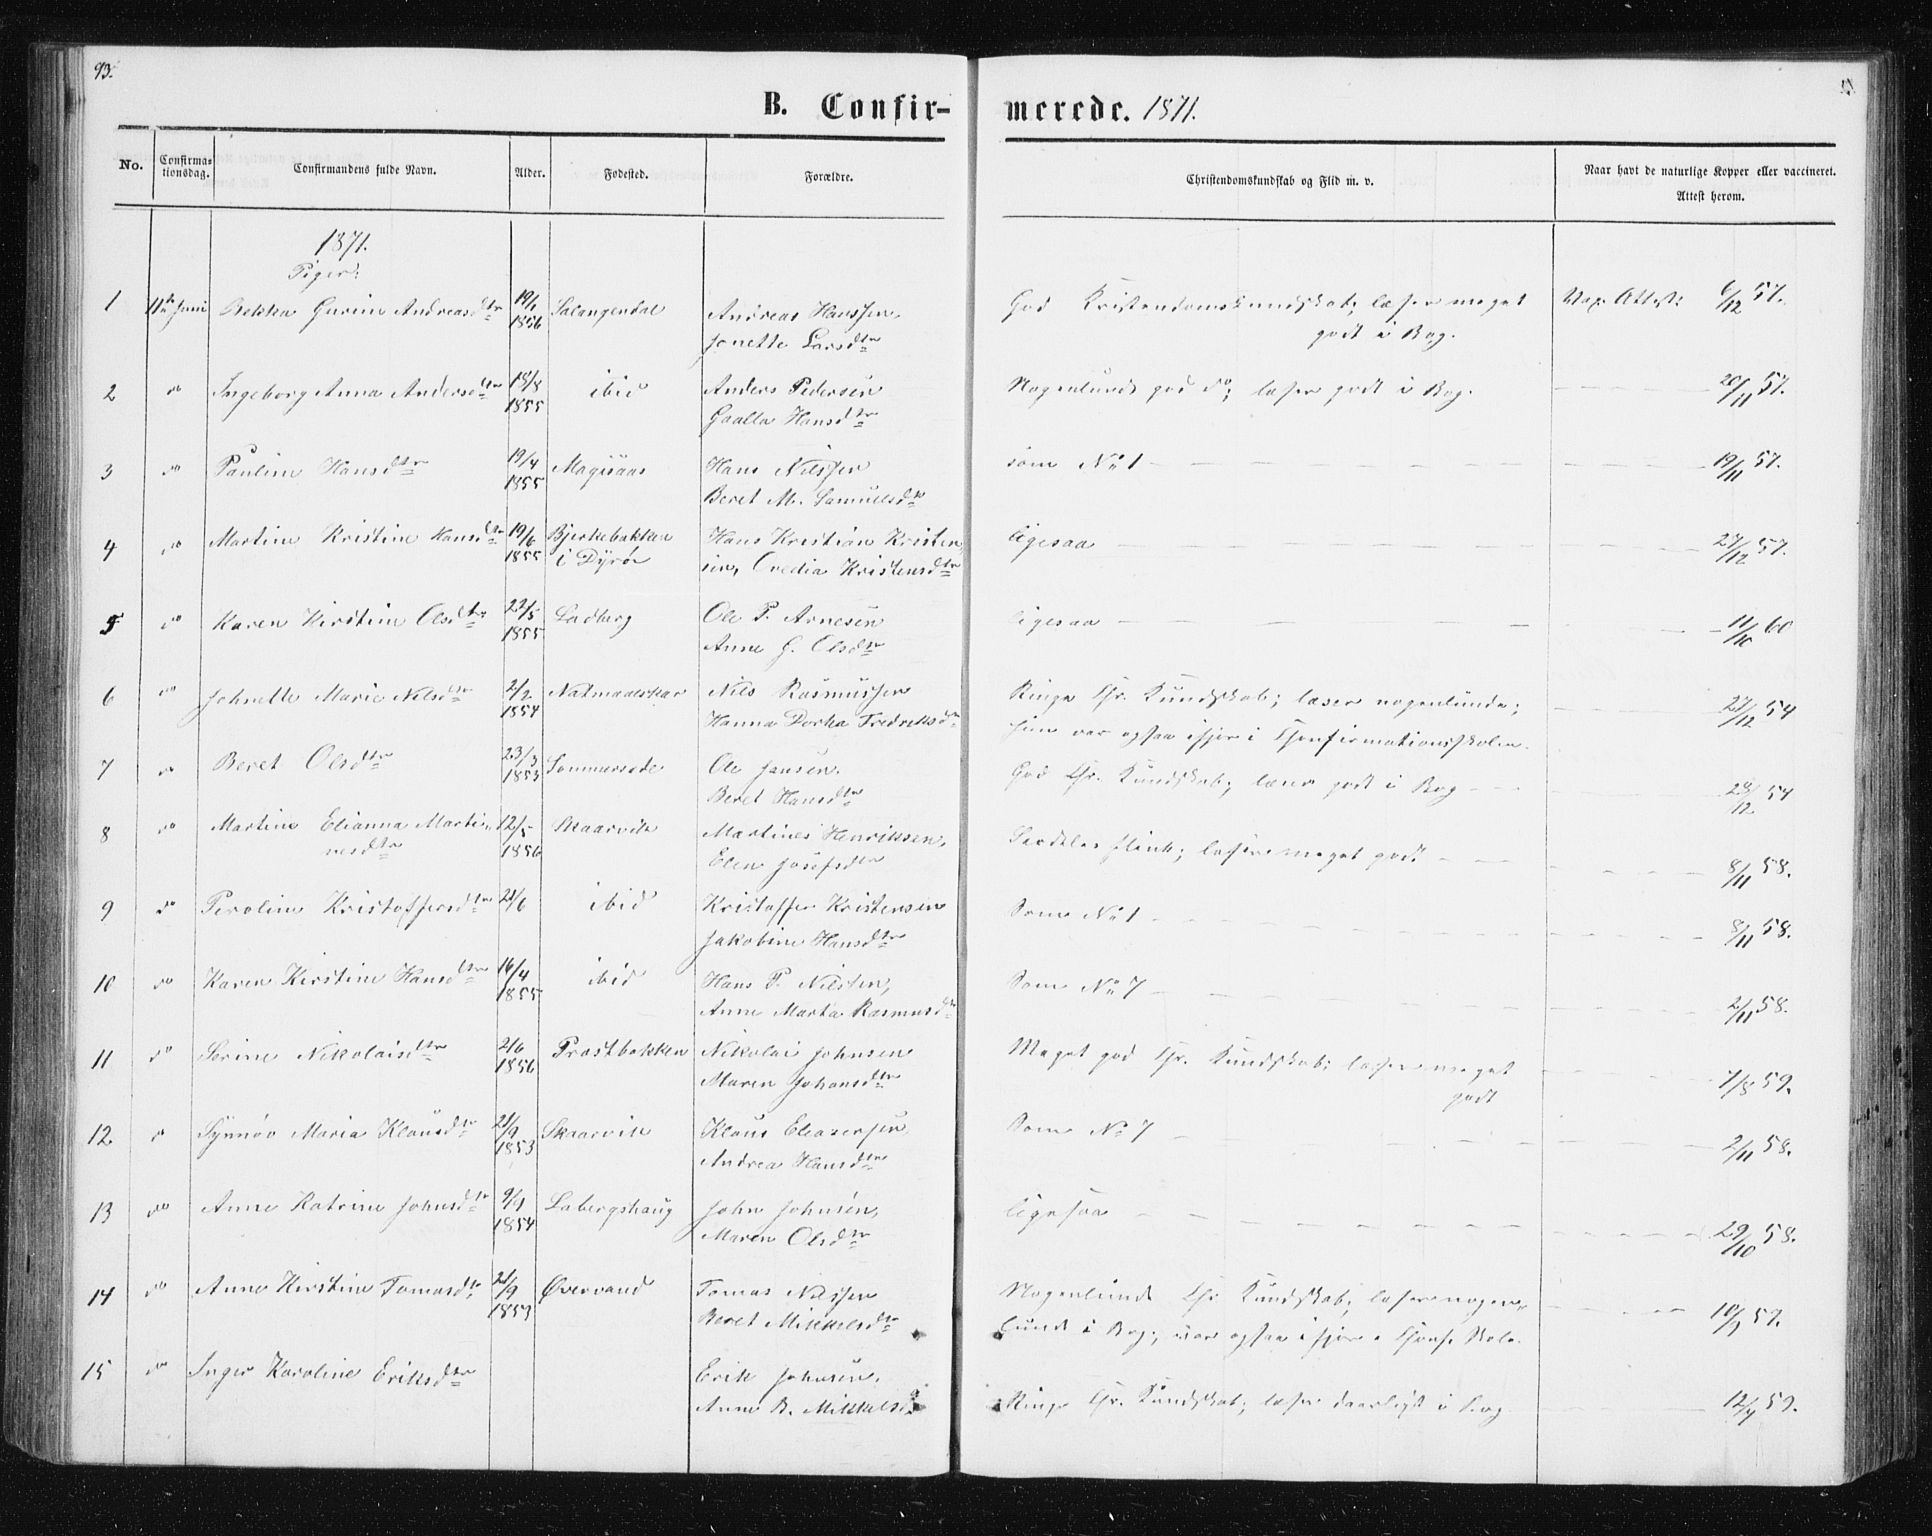 93.
B. Confir-
merede. 1871.
No. Confirma-tionsdag. Confirmandens fulde Navn. Alder. Fødested. Forældre. Christendomskundskab og Flid m. v. Naar havt de naturlige Kopper eller vaccineret. Attest herom.
1871.
Piger:
1 11te Juni Bekka Gurine Andreasdtr 19/1 1856 Salangendal Andreas Hanssen, God Kristendomskundskab; læser meget Vax. Attest: 6/12 57.
Jonette Larsdtr godt i Bog.
2 do Ingeborg Anna Andersdtr 18/8 1855 ibid Anders Pedersen Nogenlunde god do; læser godt i Bog. 20/11 57.
Gaalla Hansdtr
3 do Pauline Hansdtr 19/4 1855 Hans Nilssen som No 1 19/11 57.
Beret M. Samuelsdtr
4 do Martine Kristine Hansdtr 19/6 1855 Bjerkebakken Hans Kristian Kristen- ligesaa 27/12 57.
i Dyrø sen, Ovedia Kristensdtr
5 do Karen Kirstine Olsdtr 22/5 1855 Ladberg Ole P. Arnesen ligesaa 11/10 60
Anne G. Olsdtr
6 do Johnette Marie Nilsdtr 2/2 1854 Natmaalskar Nils Rasmussen Ringe Chr. Kundskab; læser nogenlunde; 27/12 54
Hanna Dorka Fredriksdtr hun var ogsaa ifjor i Confirmationsskolen.
7 do Beret Olsdtr 23/3 1853 Sommersæde Ole Jansen. God Chr. Kundskab; læser godt i Bog 28/12 54
Beret Hansdtr
8 do Martine Elianna Marti- 12/5 1856 Skaarvik Martines Henriksen, Særdeles flink; læser meget godt 8/11 58.
nesdtr Elen Josefsdtr
9 do Peroline Kristoffersdtr 21/6 ibid Kristoffer Kristensen Som No 1 8/11 58.
Jakobine Hansdtr
10 do Karen Kirstine Hansdtr 16/4 1855 ibid Hans P. Nilsen, Som No 7 2/11 58.
Anne Marta Rasmusdtr
11 do Serine Nikolaisdtr 2/6 1856 Prastbakken Nikolai Johnsen Meget god Chr. Kundskab; læser meget 7/8 59.
Maren Johansdtr godt
12. do Synnøv Maria Klausdtr 21/9 1853 Skaarvik Klaus Eleasersen, Som No 7 2/11 58.
Andrea Hansdtr
13 do Anne Katrine Johnsdtr 9/9 1854 Labergshaug John Johnsen, ligesaa 29/10 58.
Maren Olsdtr
14 do Anne Kirstine Tomasdtr 21/9 1853 Øvervand Tomas Nilssen Nogenlunde Chr. Kundskab; læser nogen- 10/9 57.
Beret Mikkelsdtr lunde i Bog; var ogsaa ifjor i Conf. Skole.
15 do Inger Karoline Eriksdtr Erik Johnsen.
Anne B. Mikkelsd Ringe Chr. Kundskab; læser daarligt i Bog 12/9 59.